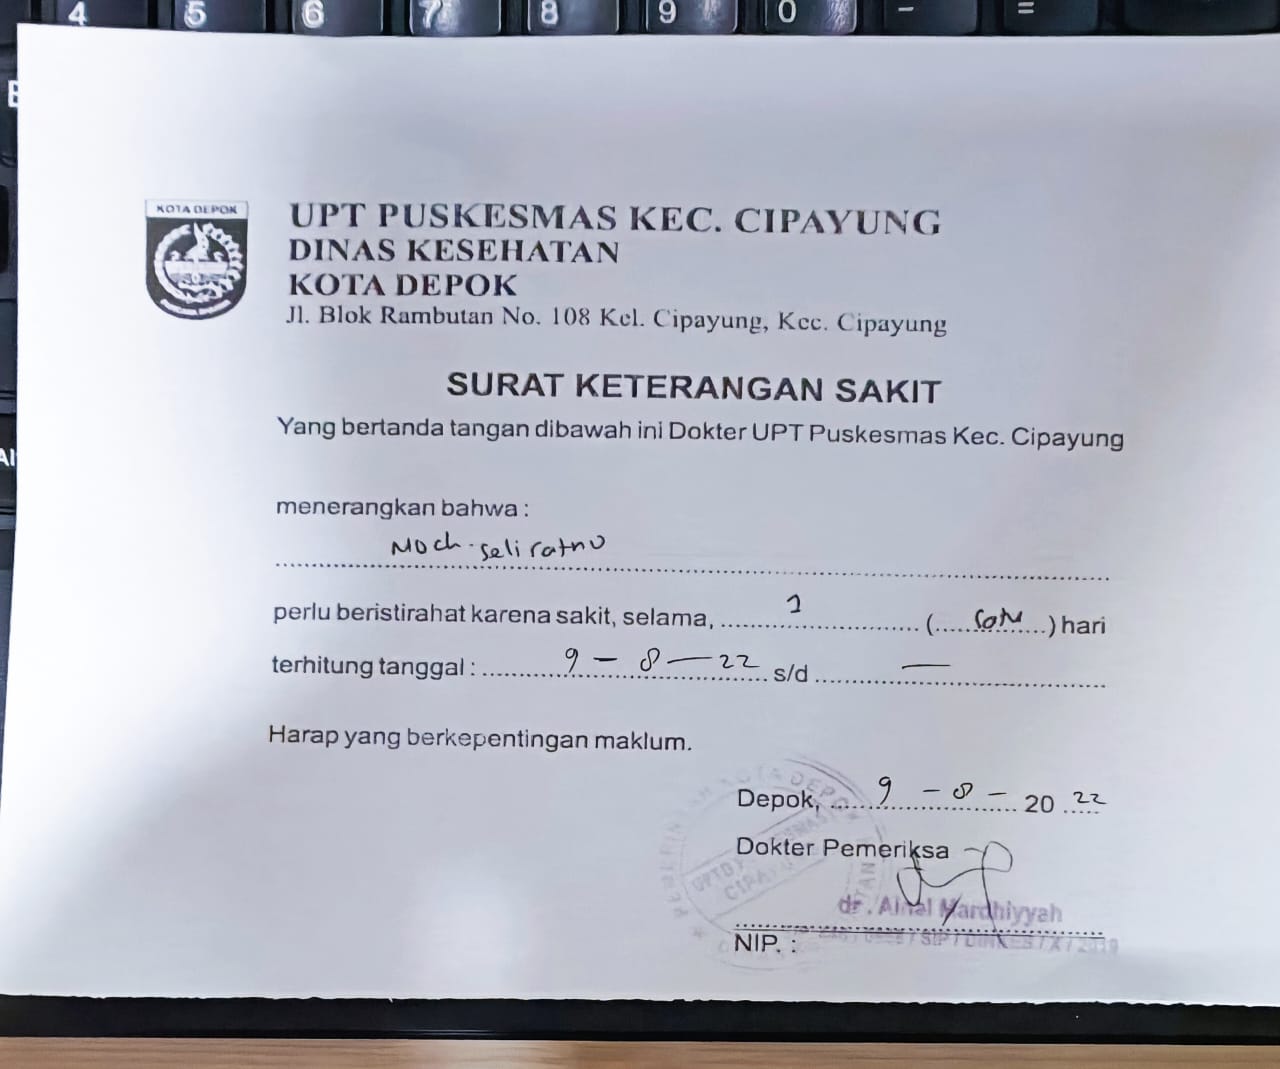 4 5 6 7 8 9 0 - =
KOTA DEPOK
UPT PUSKESMAS KEC. CIPAYUNG
DINAS KESEHATAN
KOTA DEPOK
Jl. Blok Rambutan No. 108 Kel. Cipayung, Kec. Cipayung
SURAT KETERANGAN SAKIT
Yang bertanda tangan dibawah ini Dokter UPT Puskesmas Kec. Cipayung
menerangkan bahwa :
Moch. Seli ratno
perlu beristirahat karena sakit, selama, 1 (satu) hari
terhitung tanggal : 9 - 8 - 22 s/d —
Harap yang berkepentingan maklum.
Depok, 9 - 8 - 20 22
Dokter Pemeriksa
dr. Ainal Mardhiyyah
NIP. :